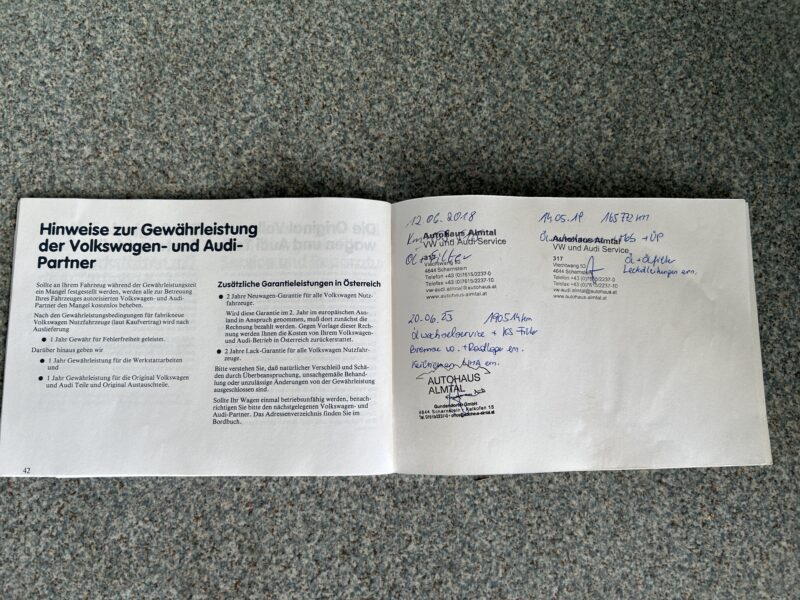 Hinweise zur Gewährleistung
der Volkswagen- und Audi-
Partner
Sollte an Ihrem Fahrzeug während der Gewährleistungszeit
ein Mangel festgestellt werden, werden alle zur Betreuung
Ihres Fahrzeuges autorisierten Volkswagen- und Audi-
Partner den Mangel kostenlos beheben.
Nach den Gewährleistungsbedingungen für fabrikneue
Volkswagen Nutzfahrzeuge (laut Kaufvertrag) wird nach
Auslieferung
● 1 Jahr Gewähr für Fehlerfreiheit geleistet.
Darüber hinaus geben wir
● 1 Jahr Gewährleistung für die Werkstattarbeiten
und
● 1 Jahr Gewährleistung für die Original Volkswagen
und Audi Teile und Original Austauschteile.
42
Zusätzliche Garantieleistungen in Österreich
● 2 Jahre Neuwagen-Garantie für alle Volkswagen Nutz-
fahrzeuge.
Wird diese Garantie im 2. Jahr im europäischen Aus-
land in Anspruch genommen, muß dort zunächst die
Rechnung bezahlt werden. Gegen Vorlage dieser Rech-
nung werden Ihnen die Kosten von Ihrem Volkswagen-
und Audi-Betrieb in Österreich zurückerstattet.
● 2 Jahre Lack-Garantie für alle Volkswagen Nutzfahr-
zeuge.
Bitte verstehen Sie, daß natürlicher Verschleiß und Schä-
den durch Überbeanspruchung, unsachgemäße Behand-
lung oder unzulässige Änderungen von der Gewährleistung
ausgeschlossen sind.
Sollte Ihr Wagen einmal betriebsunfähig werden, benach-
richtigen Sie bitte den nächstgelegenen Volkswagen- und
Audi-Partner. Das Adressenverzeichnis finden Sie im
Bordbuch.
12.06.2018
Autohaus Almtal
VW und Audi Service
Viechtwang 53
4644 Scharnstein
Telefon +43 (0)7615/2237-0
Telefax +43 (0)7615/2237-10
vw-audi.almtal@autohaus.at
www.autohaus-almtal.at
14.05.19 16572 km
Autohaus Almtal + ÜP
VW und Audi Service
317
Viechtwang 53
4644 Scharnstein
Telefon +43 (0)7615/2237-0
Telefax +43 (0)7615/2237-10
vw-audi.almtal@autohaus.at
www.autohaus-almtal.at
Öl + Ölfilter
Leckölleitungen ern.
20.06.23 190514 km
Ölwechselservice + Filter
Bremse + Radlager ern.
Keilriemen ern.
AUTOHAUS
ALMTAL
GmbH
4644 Scharnstein, Kalkofen 15